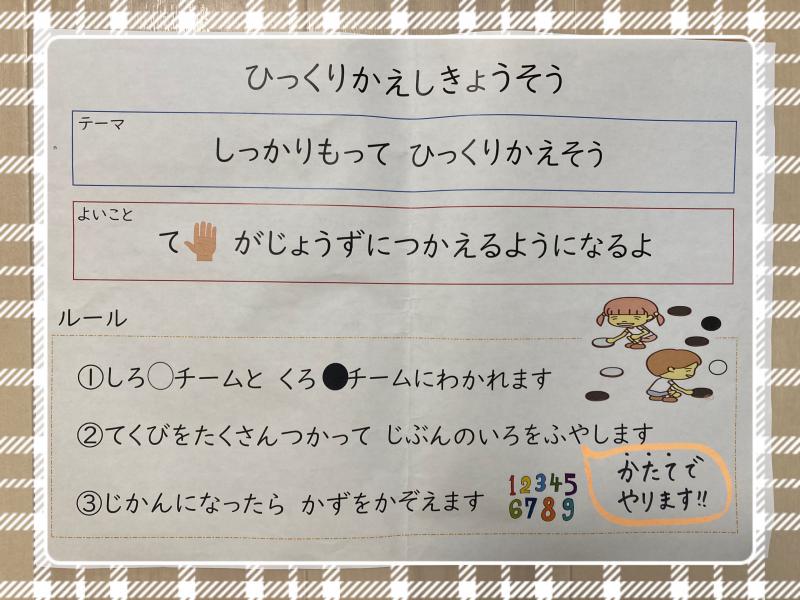 ひっくりかえしきょうそう
テーマ
しっかりもって ひっくりかえそう
よいこと
て がじょうずにつかえるようになるよ
ルール
①しろ○チームと くろ●チームにわかれます
②てくびをたくさんつかって じぶんのいろをふやします
かたてで
やります!!
③じかんになったら かずをかぞえます
12345
6789